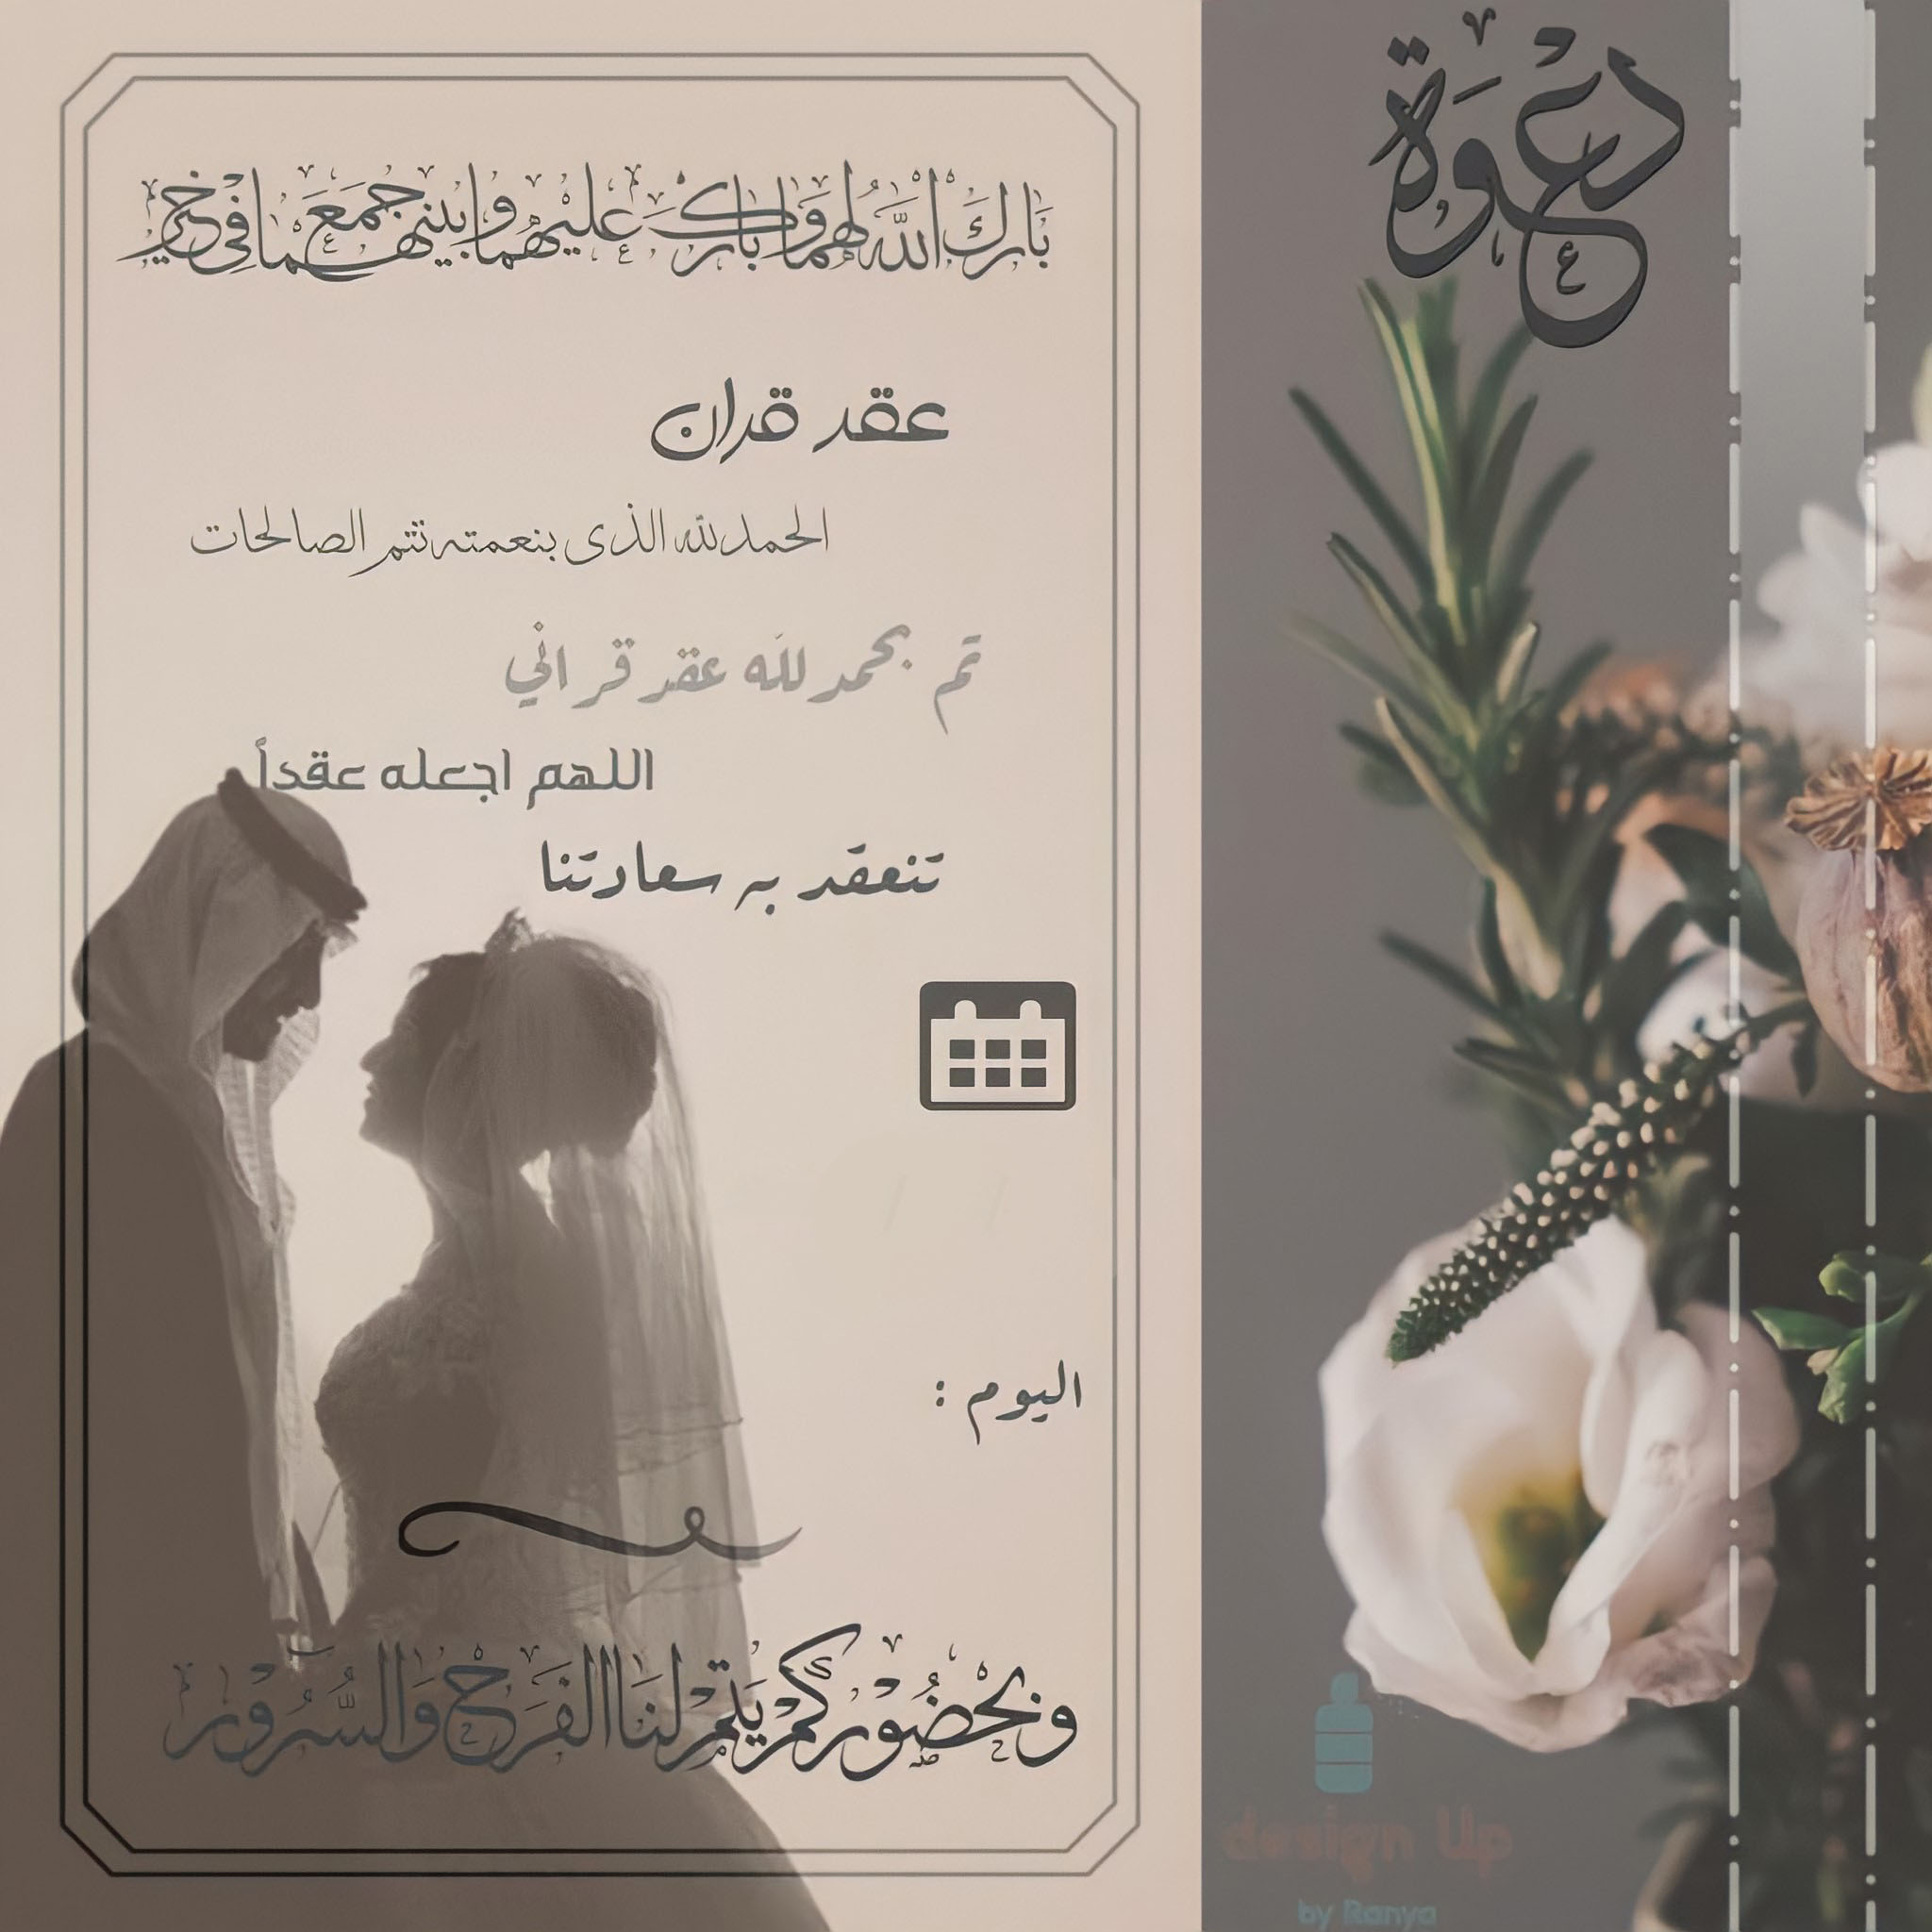 دعوة
بَارَكَ اللَّهُ لَهُمَا وَبَارَكَ عَلَيْهِمَا وَجَمَعَ بَيْنَهُمَا فِي خَيْرٍ
عقد قران
الحمد لله الذى بنعمته تتم الصالحات
تم بحمد لله عقد قراني
اللهم اجعله عقداً
تنعقد به سعادتنا
اليوم :
وَبِحُضُوْرِكُمْ يَتِمُّ لَنَا الْفَرَحُ وَالسُّرُوْرُ
design Up
by Ranya